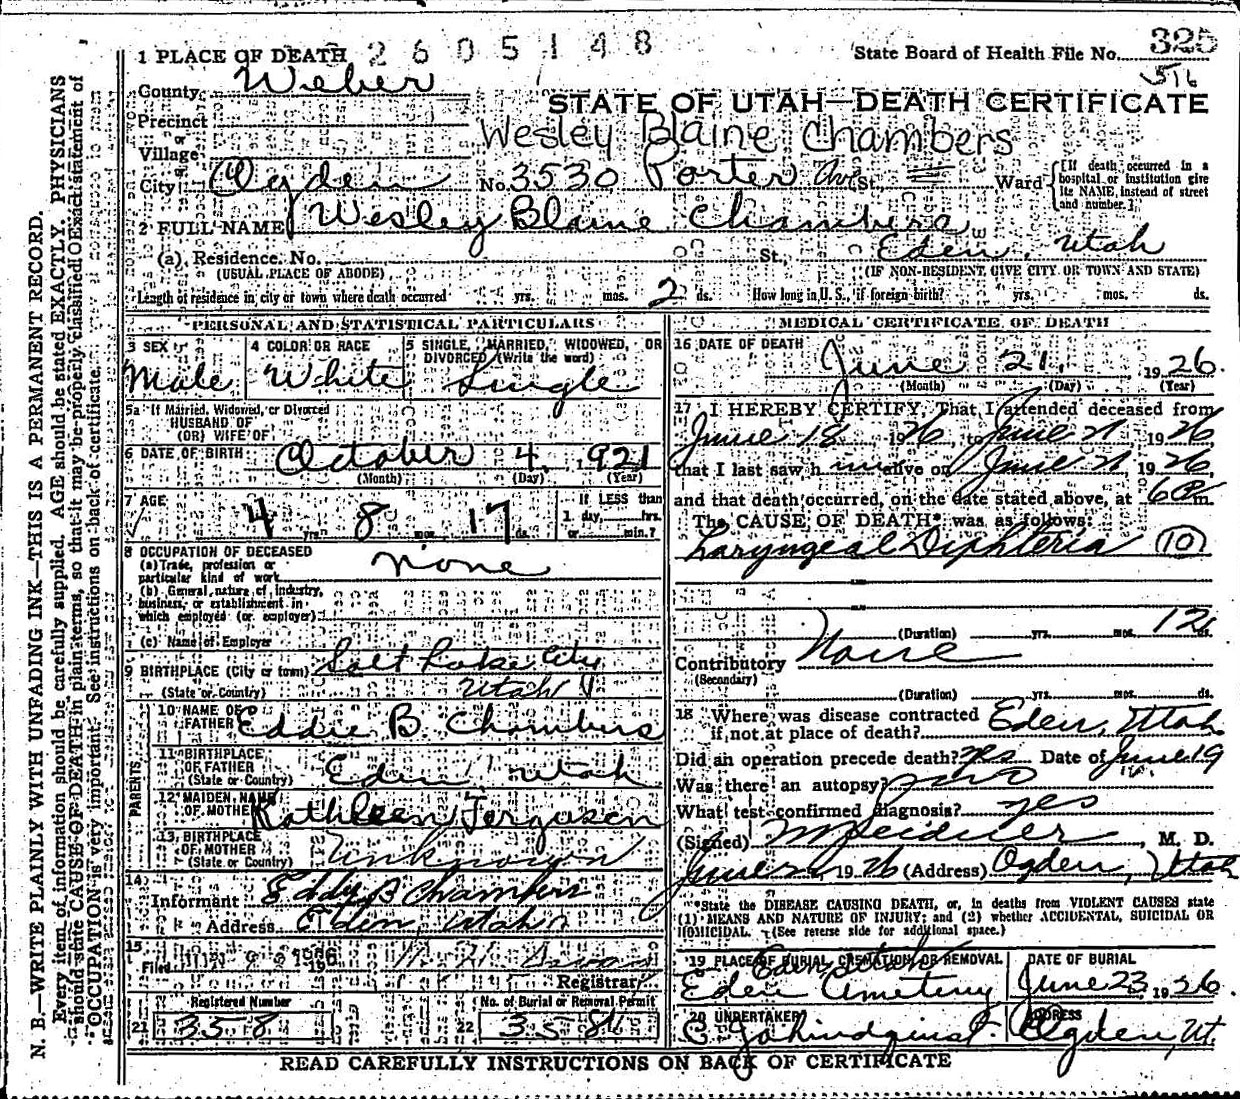 N. B.—WRITE PLAINLY WITH UNFADING INK—THIS IS A PERMANENT RECORD.
Every item of information should be carefully supplied. AGE should be stated EXACTLY. PHYSICIANS
should state CAUSE OF DEATH in plain terms, so that it may be properly classified. Exact statement of
OCCUPATION is very important. See instructions on back of certificate.
1 PLACE OF DEATH 2605148
State Board of Health File No. 325
516
County Weber
STATE OF UTAH—DEATH CERTIFICATE
Precinct
or
Village
Wesley Blaine Chambers
City Ogden No. 3530 Porter Ave St. Ward
[If death occurred in a hospital or institution give its NAME, instead of street and number.]
2 FULL NAME Wesley Blaine Chambers
(a) Residence. No. St. Eden, Utah
(USUAL PLACE OF ABODE) (IF NON-RESIDENT, GIVE CITY OR TOWN AND STATE)
Length of residence in city or town where death occurred yrs. mos. 2 ds. How long in U. S., if foreign birth? yrs. mos. ds.
PERSONAL AND STATISTICAL PARTICULARS
3 SEX 4 COLOR OR RACE 5 SINGLE, MARRIED, WIDOWED, OR DIVORCED (Write the word)
Male White Single
5a If Married, Widowed, or Divorced
HUSBAND OF
(OR) WIFE OF
6 DATE OF BIRTH October 4, 1921
(Month) (Day) (Year)
7 AGE 4 yrs. 8 mos. 17 ds. If LESS than 1 day, hrs. or min.?
8 OCCUPATION OF DECEASED
(a) Trade, profession or particular kind of work None
(b) General nature of industry, business, or establishment in which employed (or employer)
(c) Name of Employer
9 BIRTHPLACE (City or town) Salt Lake City
(State or Country) Utah
PARENTS
10 NAME OF FATHER Eddie B. Chambers
11 BIRTHPLACE OF FATHER (State or Country) Eden Utah
12 MAIDEN NAME OF MOTHER Kathleen Ferguson
13 BIRTHPLACE OF MOTHER (State or Country) Unknown
14 Informant Eddy B Chambers
Address Eden, Utah
15 Filed 1926
Registrar
21 Registered Number 358
22 No. of Burial or Removal Permit
MEDICAL CERTIFICATE OF DEATH
16 DATE OF DEATH June 21, 1926.
(Month) (Day) (Year)
17 I HEREBY CERTIFY, That I attended deceased from
June 18 1926, to June 21 1926
that I last saw him alive on June 21 1926
and that death occurred, on the date stated above, at 6 P m.
The CAUSE OF DEATH* was as follows:
Laryngeal Diphteria (10)
(Duration) yrs. mos. 12 ds.
Contributory None
(Secondary)
(Duration) yrs. mos. ds.
18 Where was disease contracted if not at place of death? Eden, Utah
Did an operation precede death? yes Date of June 19
Was there an autopsy? no
What test confirmed diagnosis? yes
(Signed) , M. D.
June 1926 (Address) Ogden, Utah
*State the DISEASE CAUSING DEATH, or, in deaths from VIOLENT CAUSES state
(1) MEANS AND NATURE OF INJURY; and (2) whether ACCIDENTAL, SUICIDAL OR
HOMICIDAL. (See reverse side for additional space.)
19 PLACE OF BURIAL, CREMATION, OR REMOVAL DATE OF BURIAL
Eden Utah
Eden Cemetery June 23, 1926.
20 UNDERTAKER ADDRESS
Ogden, Ut.
READ CAREFULLY INSTRUCTIONS ON BACK OF CERTIFICATE